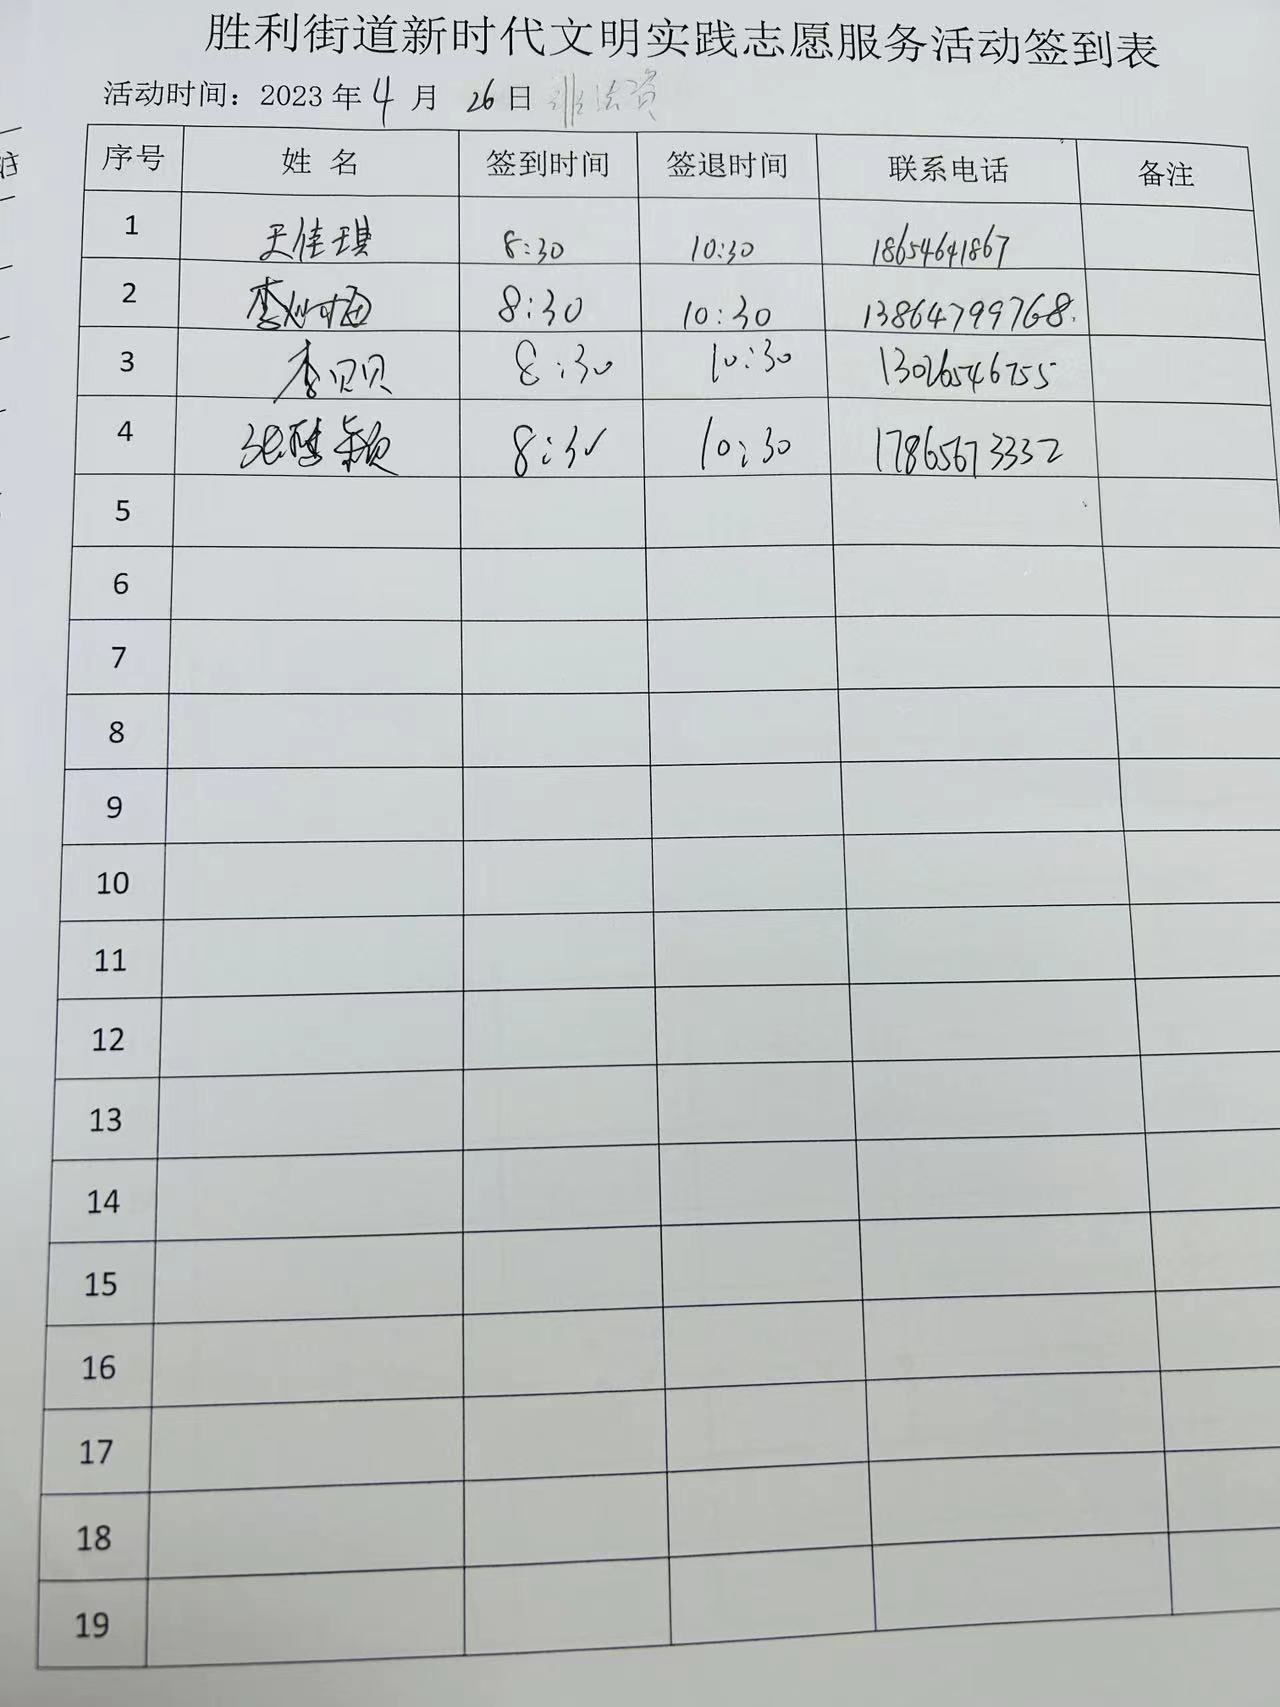 胜利街道新时代文明实践志愿服务活动签到表
活动时间：2023年4月26日 非法资
序号 姓名 签到时间 签退时间 联系电话 备注
1 王佳琪 8:30 10:30 18654641867
2 李 8:30 10:30 13864799768.
3 李贝贝 8:30 10:30 13026546755
4 颖 8:30 10:30 17865673332
5
6
7
8
9
10
11
12
13
14
15
16
17
18
19